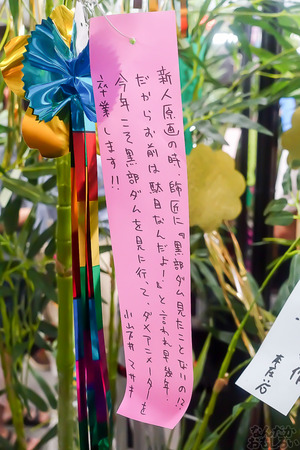 新人原画の時、師匠に『黒部ダム見たことないの!?
だからお前は駄目なんだよー』と言われ早幾年…
今年こそ黒部ダムを見に行って、ダメアニメーターを
卒業します!!
小岩井 マサキ